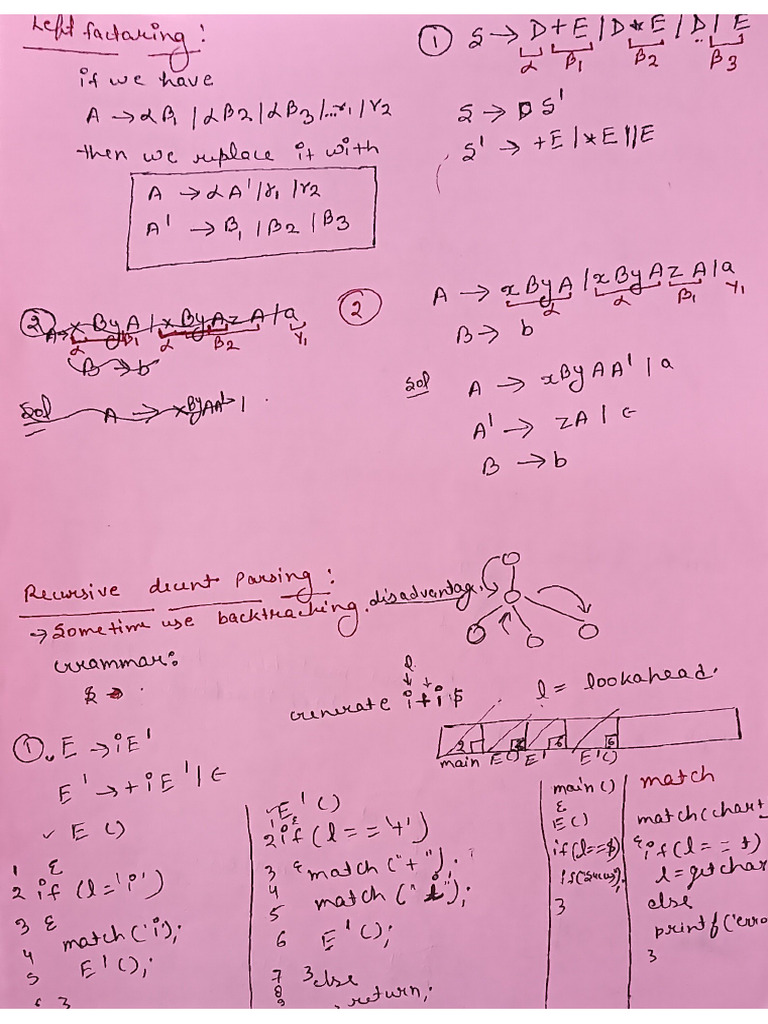 Left factoring :
if we have
A → αβ1 | αβ2 | αβ3 |...γ1 | γ2
then we replace it with
A → αA' | γ1 | γ2
A' → β1 | β2 | β3
① S → D+E | D*E | D | E
α β1 β2 β3
S → D S'
S' → +E | *E || E
② A → xByA | xByAzA | a
α β1 α β2 γ1
B → b
Sol A → xByAA' |
② A → xByA | xByAzA | a
α α β1 γ1
B → b
Sol A → xByAA' | a
A' → zA | ε
B → b
Recursive decent Parsing :
→ Sometime use backtracking. disadvantag.
Grammar:
Generate i+i$
l
l = lookahead.
2 6 6 6
main E() E' E'()
①. E → iE'
E' → +iE' | ε
✓ E ()
1 {
2 if (l='i')
3 {
4 match('i');
5 E'();
6 }
✓ E' ()
1 {
2 if (l == '+')
3 { match("+");
4 match("i");
5
6 E'();
7 } else
8 return;
9
main ()
{
E()
if(l==$)
}
match
match(char t
{ if(l == t)
l = getchar
else
printf("erro
}